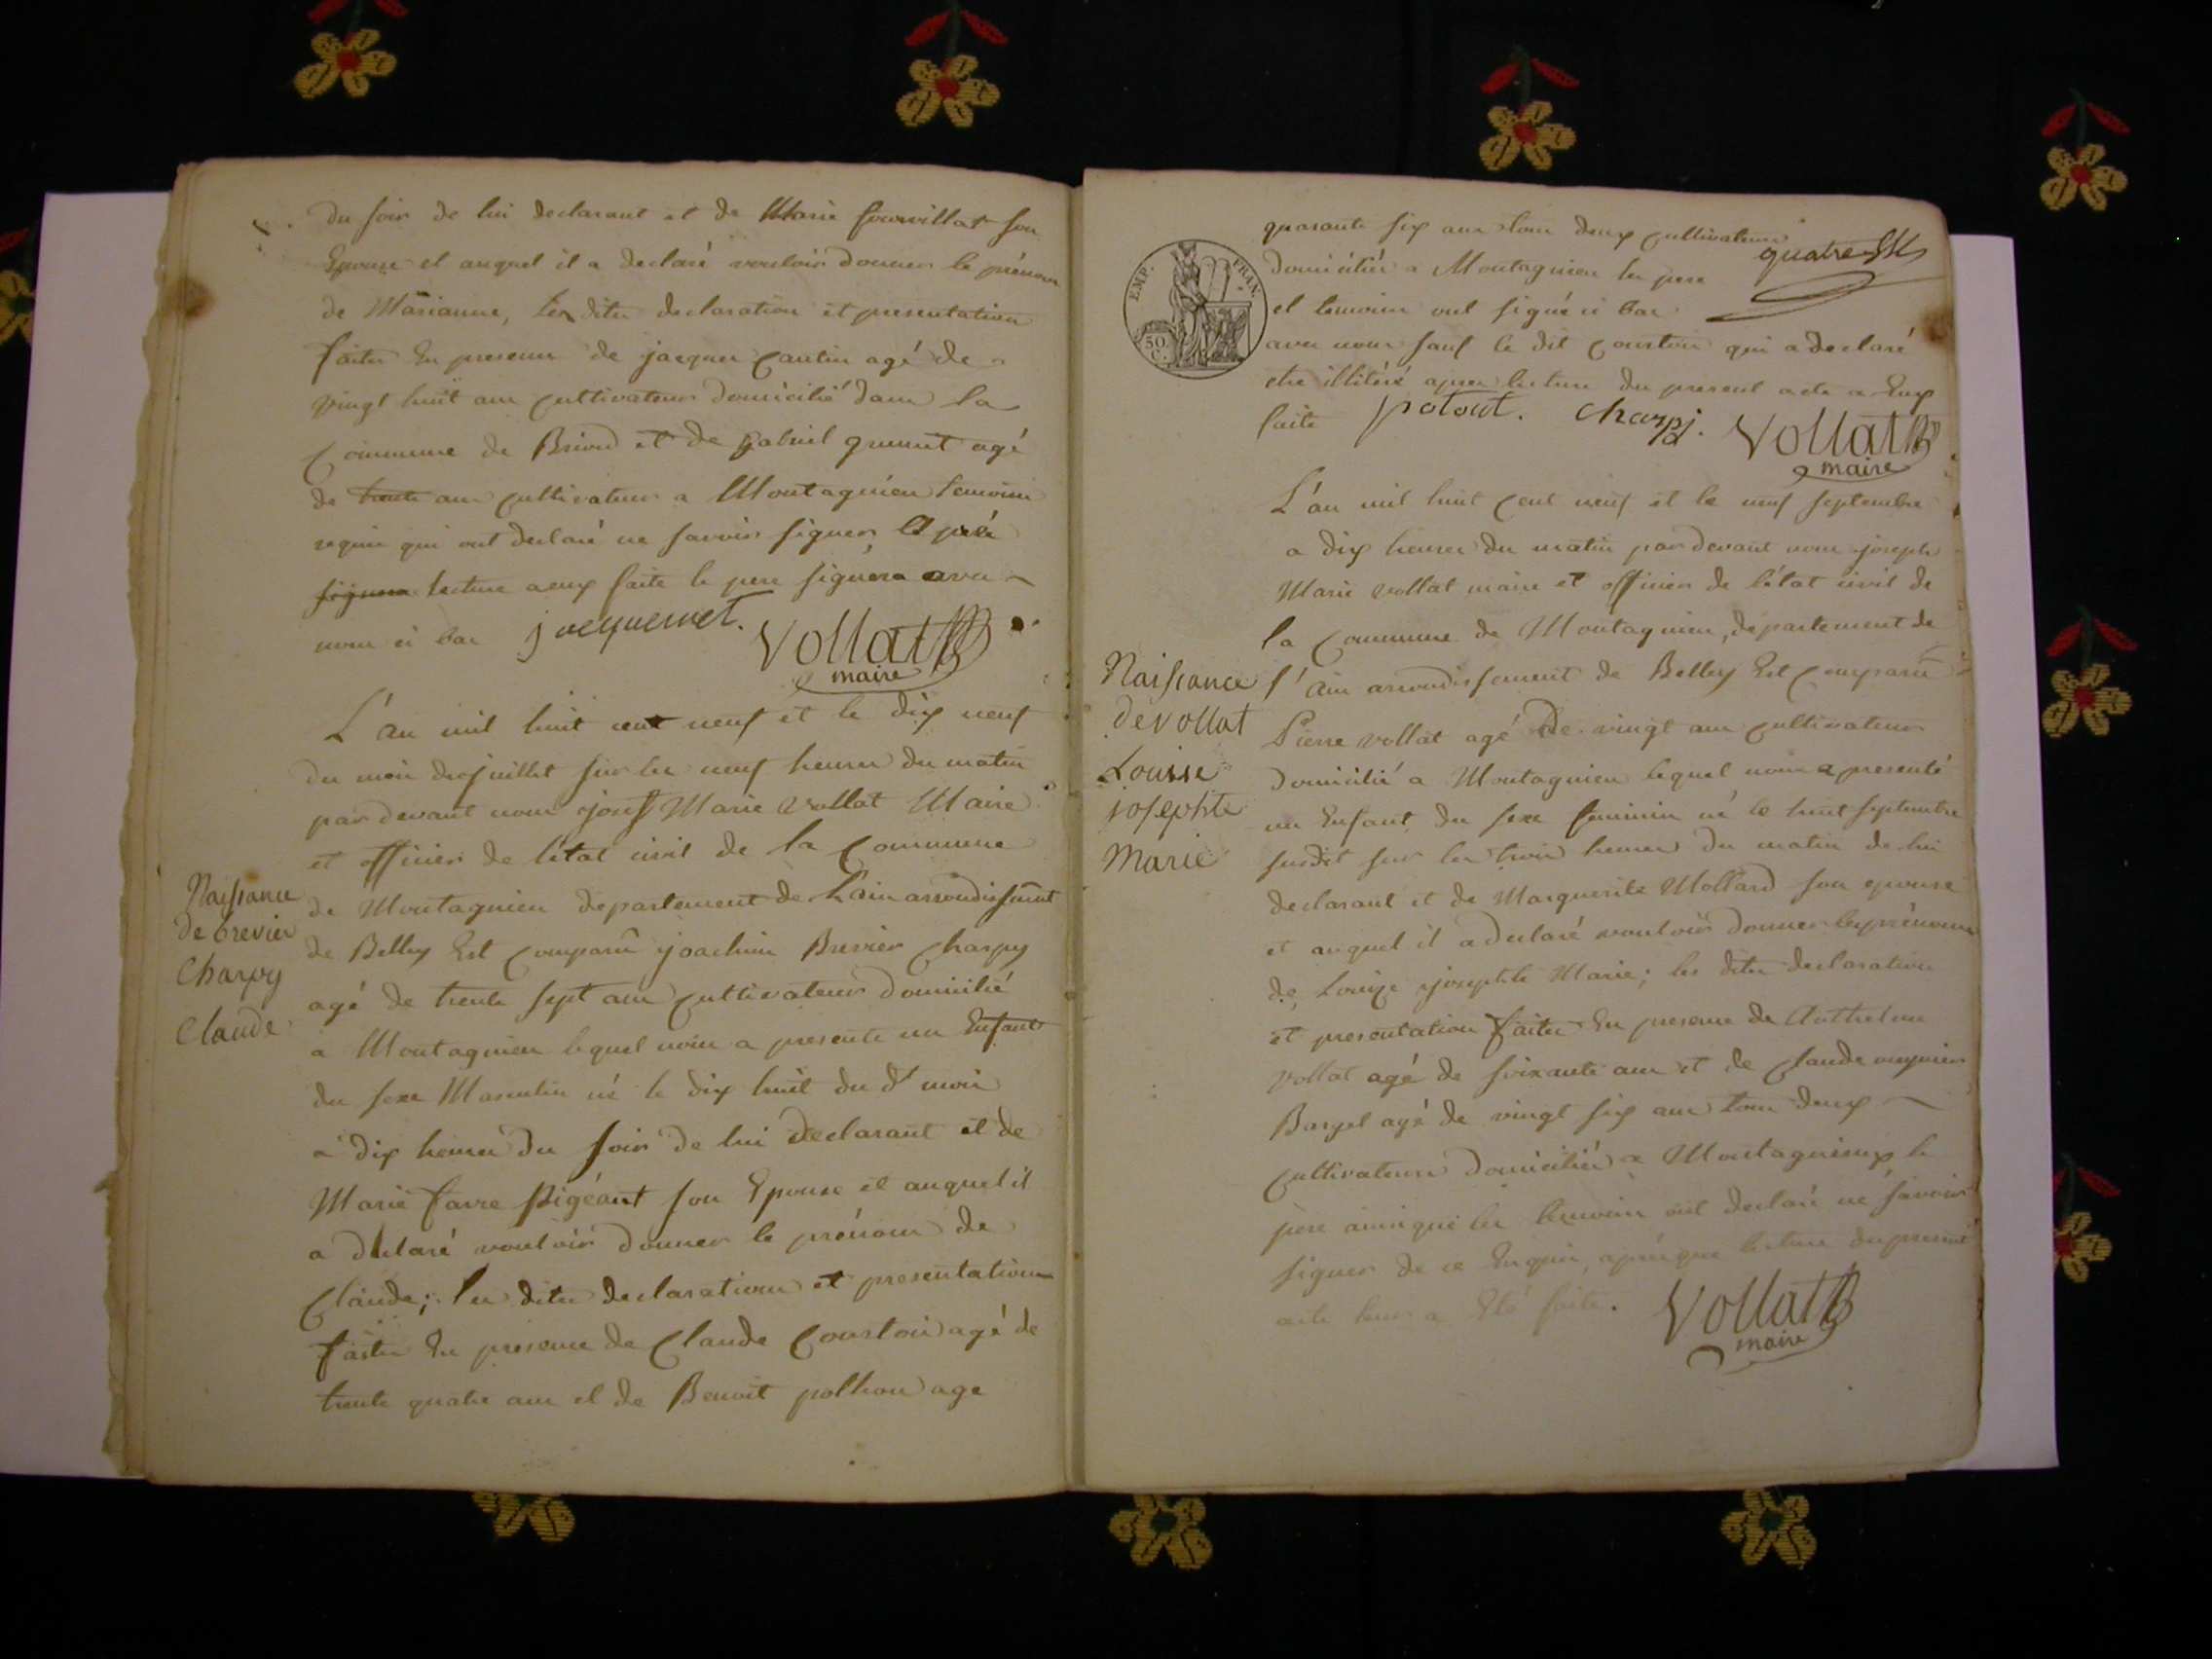 du soir de lui declarant et de Marie souvillat son
Epouse et auquel il a declaré vouloir donner le prénom
de Marianne, les dites declaration et presentation
faites En presence de jacques cantin agé de
vingt huit ans cultivateur domicilié dans la
Commune de Briord et de gabriel grumet agé
de trente ans cultivateur a Montagnieu temoins
requis qui ont declaré ne savoir signer, le père
signera lecture a eux faite le pere signera avec
nous ci bas jucquemet. Vollat
maire
L'an mil huit cent neuf et le dix neuf
du mois de juillet sur les neuf heures du matin
par devant nous josef Marie Vollat Maire
et officier de l'état civil de la Commune
de Montagnieu departement de L'ain arrondissement
de Belley Est comparu joachim Brevier Charpy
agé de trente sept ans cultivateur domicilié
a Montagnieu lequel nous a presenté un Enfant
du sexe Masculin né le dix huit du dt mois
à dix heures du soir de lui declarant et de
Marie favre pigéant son Epouse et auquel il
a declaré vouloir donner le prénom de
Claude; les dites declarations et presentations
faites En presence de Claude Courtois agé de
trente quatre ans et de Benoit agé
Naissance
de brevier
Charpy
Claude
quarante six ans tous deux cultivateurs
domiciliés a Montagnieu les pere
et temoins ont signé ci bas
avec nous sauf le dit courtois qui a declaré
etre illitéré apres lecture du present acte a Eux
faite potout. charpj. Vollat
maire
quatre
EMP. FRAN.
50.
C.
L'an mil huit cent neuf et le neuf septembre
a dix heures du matin par devant nous joseph
Marie vollat maire et officier de l'état civil de
la Commune de Montagnieu, departement de
l'Ain arrondissement de Belley Est comparu
Pierre vollat agé de vingt ans cultivateur
domicilié a Montagnieu lequel nous a presenté
un Enfant du sexe feminin né le huit septembre
susdit sur les trois heures du matin de lui
declarant et de Marguerite Mollard son epouse
et auquel il a declaré vouloir donner les prénoms
de Louise josephte Marie; les dites declaration
et presentation faites En presence de Anthelme
vollat agé de soixante ans et de Claude
agé de vingt six ans tous deux
cultivateurs domiciliés a le
pere ainsi que les temoins ont declaré ne savoir
signer de ce Enquis, après que lecture du present
acte leurs a Eté faite. Vollat
maire
Naissance
de vollat
Louise
josephte
Marie